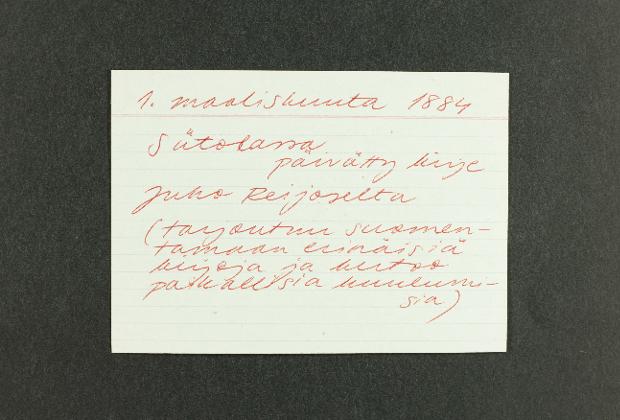 1. maaliskuuta 1884
Siitolassa
päivätty kirje
Juho Reijoselta
(tarjoutuu suomen-
tamaan erinäisiä
kirjoja ja kertoo
paikallisia kuulumi-
sia)